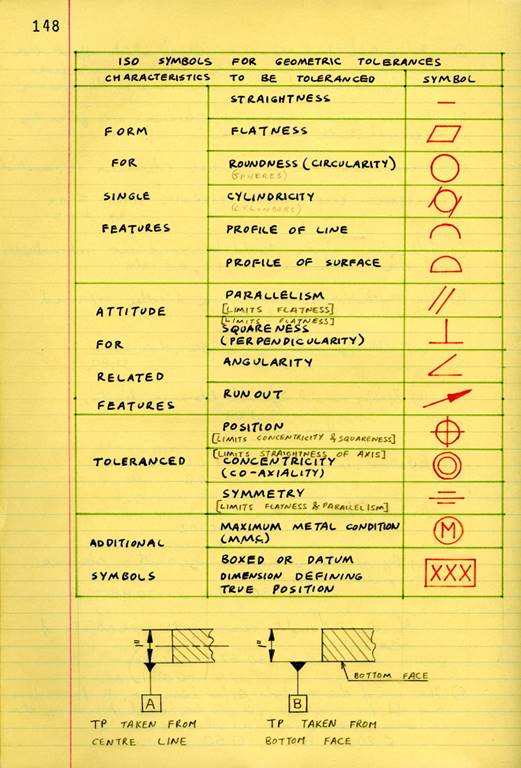 148
ISO SYMBOLS FOR GEOMETRIC TOLERANCES
CHARACTERISTICS TO BE TOLERANCED SYMBOL
STRAIGHTNESS
FORM FLATNESS
FOR ROUNDNESS (CIRCULARITY)
(SPHERES)
SINGLE CYLINDRICITY
(CYLINDERS)
FEATURES PROFILE OF LINE
PROFILE OF SURFACE
PARALLELISM
ATTITUDE [LIMITS FLATNESS]
[LIMITS FLATNESS]
SQUARENESS
FOR (PERPENDICULARITY)
ANGULARITY
RELATED
RUN OUT
FEATURES
POSITION
[LIMITS CONCENTRICITY & SQUARENESS]
[LIMITS STRAIGHTNESS OF AXIS]
TOLERANCED CONCENTRICITY
(CO-AXIALITY)
SYMMETRY
[LIMITS FLATNESS & PARALLELISM]
MAXIMUM METAL CONDITION M
ADDITIONAL (MMC)
BOXED OR DATUM
SYMBOLS DIMENSION DEFINING XXX
TRUE POSITION
1" 1"
BOTTOM FACE
A B
TP TAKEN FROM TP TAKEN FROM
CENTRE LINE BOTTOM FACE